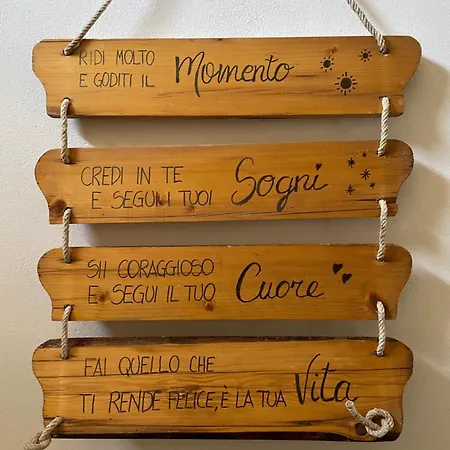 RIDI MOLTO
E GODITI IL Momento
CREDI IN TE
E SEGUI I TUOI Sogni
SII CORAGGIOSO
E SEGUI IL TUO Cuore
FAI QUELLO CHE
TI RENDE FELICE, È LA TUA Vita